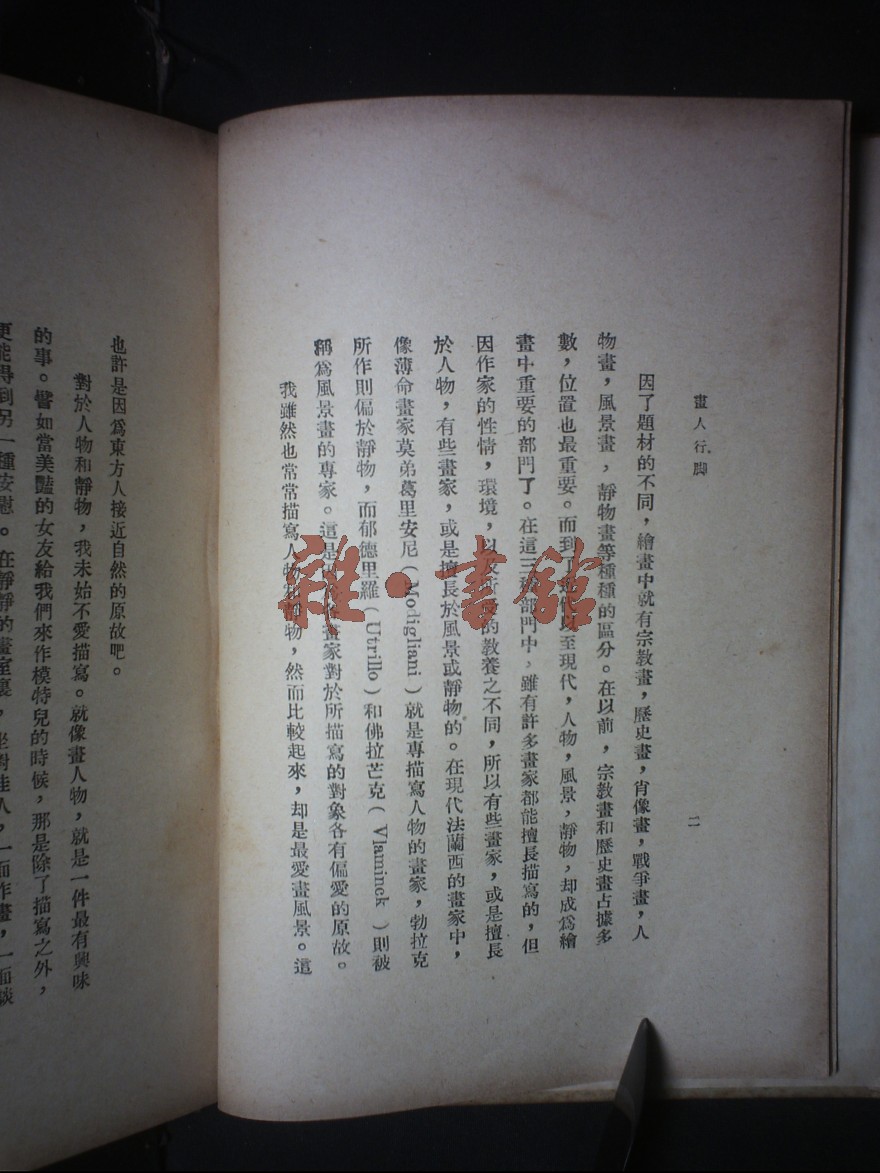 畫人行脚
二
因了題材的不同，繪畫中就有宗教畫，歷史畫，肖像畫，戰爭畫，人
物畫，風景畫，靜物畫等種種的區分。在以前，宗教畫和歷史畫占據多
數，位置也最重要。而到了近代以至現代，人物，風景，靜物，却成爲繪
畫中重要的部門了。在這三種部門中，雖有許多畫家都能擅長描寫的，但
因作家的性情，環境，以及所受的教養之不同，所以有些畫家，或是擅長
於人物，有些畫家，或是擅長於風景或靜物的。在現代法蘭西的畫家中，
像薄命畫家莫弟葛里安尼（Modigliani）就是專描寫人物的畫家，勃拉克
所作則偏於靜物，而郁德里羅（Utrillo）和佛拉芒克（Vlaminck）則被
稱爲風景畫的專家。這是因爲畫家對於所描寫的對象各有偏愛的原故。
我雖然也常常描寫人物和靜物，然而比較起來，却是最愛畫風景。這
也許是因爲東方人接近自然的原故吧。
對於人物和靜物，我未始不愛描寫。就像畫人物，就是一件最有興味
的事。譬如當美豔的女友給我們來作模特兒的時候，那是除了描寫之外，
更能得到另一種安慰。在靜靜的畫室裏，坐對佳人，一面作畫，一面談
雜·書館